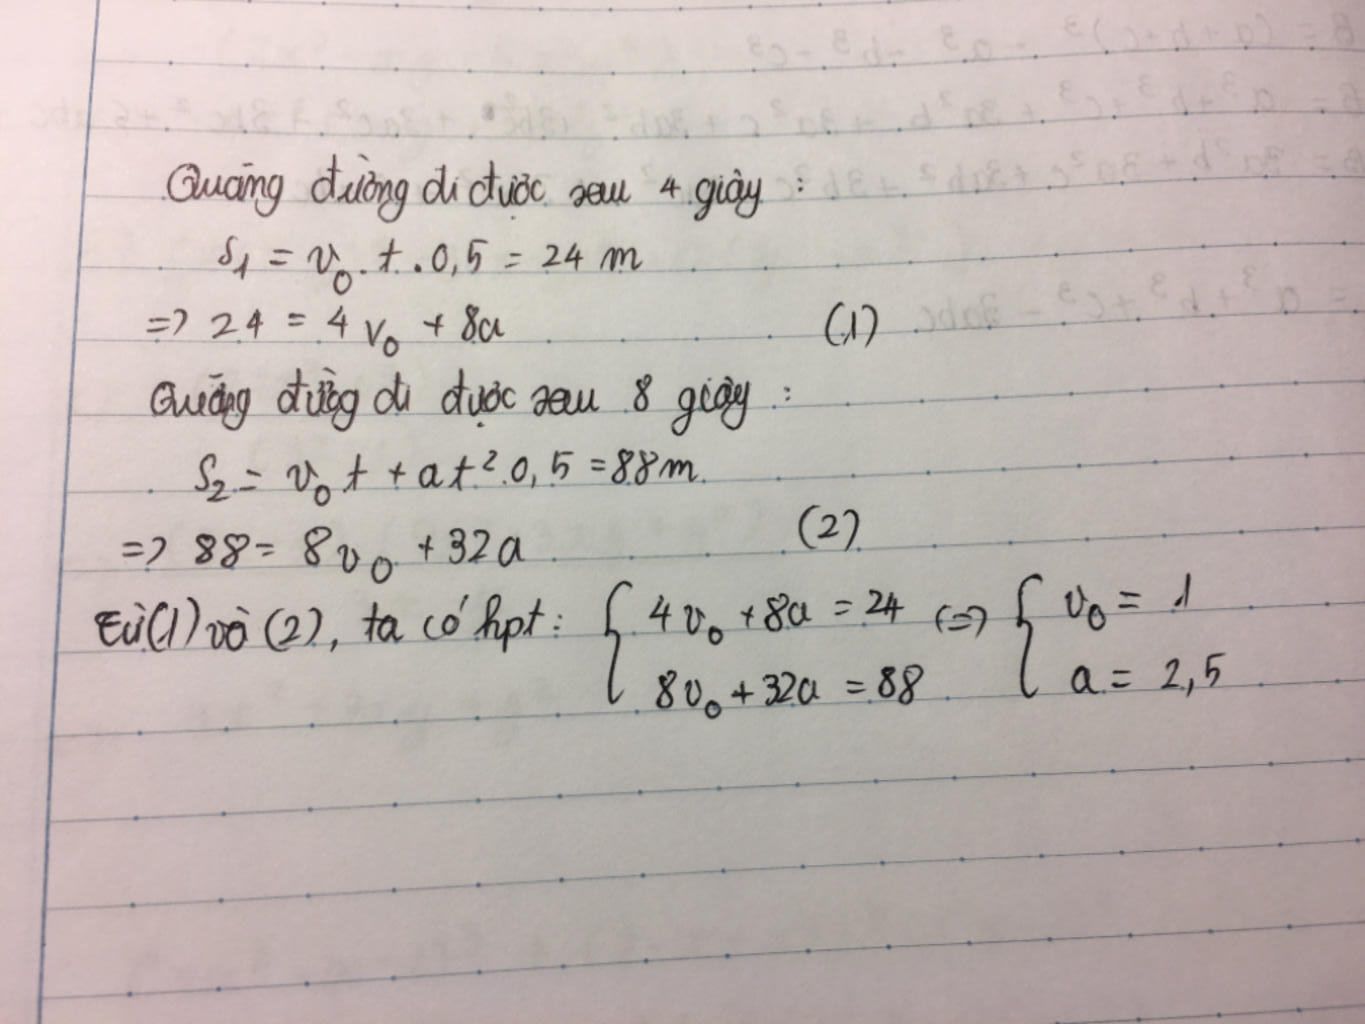 Quãng đường đi được sau 4 giây :
S₁ = v₀ . t . 0,5 = 24 m
=> 24 = 4v₀ + 8a (1)
Quãng đường đi được sau 8 giây :
S₂ = v₀t + at² . 0,5 = 88m
=> 88 = 8v₀ + 32a (2)
Từ (1) và (2), ta có hpt : { 4v₀ + 8a = 24 (=> { v₀ = 1
8v₀ + 32a = 88 a = 2,5